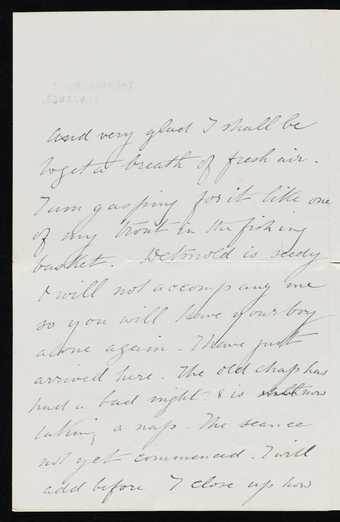 and very glad I shall be
to get a breath of fresh air.
I am gasping for it like one
of my trout in the fishing
basket. Detmold is seedy
& will not accompany me
so you will have your boy
alone again. I have just
arrived here. The old chap has
had a bad night & is now
taking a nap. The seance
not yet commenced. I will
add before I close up how